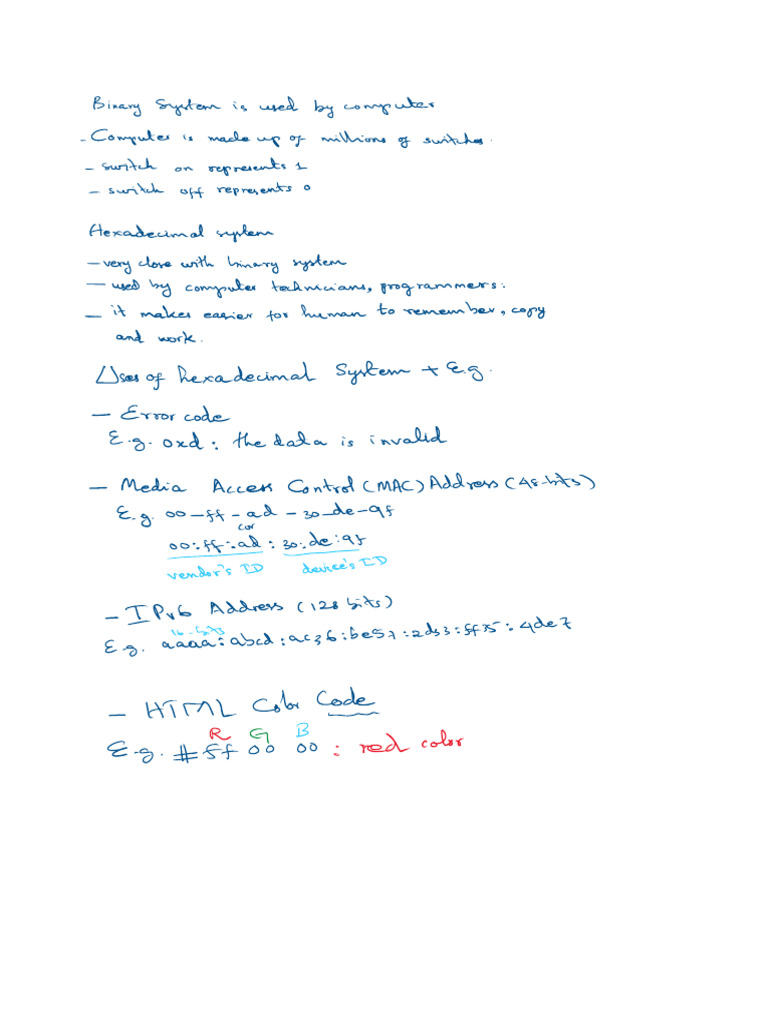 Binary System is used by computer
- Computer is made up of millions of switches.
- switch on represents 1
- switch off represents 0
Hexadecimal system
- very close with binary system
- used by computer technicians, programmers.
- it makes easier for human to remember, copy
and work.
Uses of hexadecimal System + E.g.
- Error code
E.g. 0xd : the data is invalid
- Media Access Control (MAC) Address (48-bits)
E.g. 00-ff-ad-30-de-9f
(or
00:ff:ad:30:de:9f
vendor's ID device's ID
- IPv6 Address (128 bits)
16-bits
E.g. aaaa:abcd:ac36:be57:2ds3:ff75:4de7
- HTML Color Code
R G B
E.g. #ff 00 00 : red color